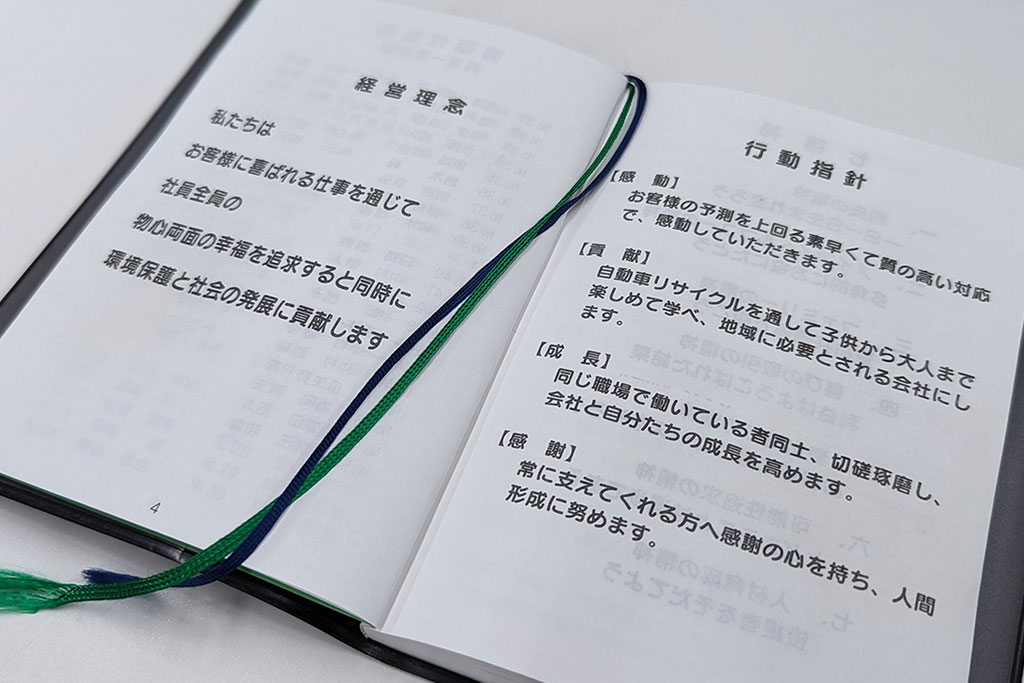 経営理念
私たちは
お客様に喜ばれる仕事を通じて
社員全員の
物心両面の幸福を追求すると同時に
環境保護と社会の発展に貢献します
4
行動指針
【感　動】
お客様の予測を上回る素早くて質の高い対応
で、感動していただきます。
【貢　献】
自動車リサイクルを通して子供から大人まで
楽しめて学べ、地域に必要とされる会社にし
ます。
【成　長】
同じ職場で働いている者同士、切磋琢磨し、
会社と自分たちの成長を高めます。
【感　謝】
常に支えてくれる方へ感謝の心を持ち、人間
形成に努めます。